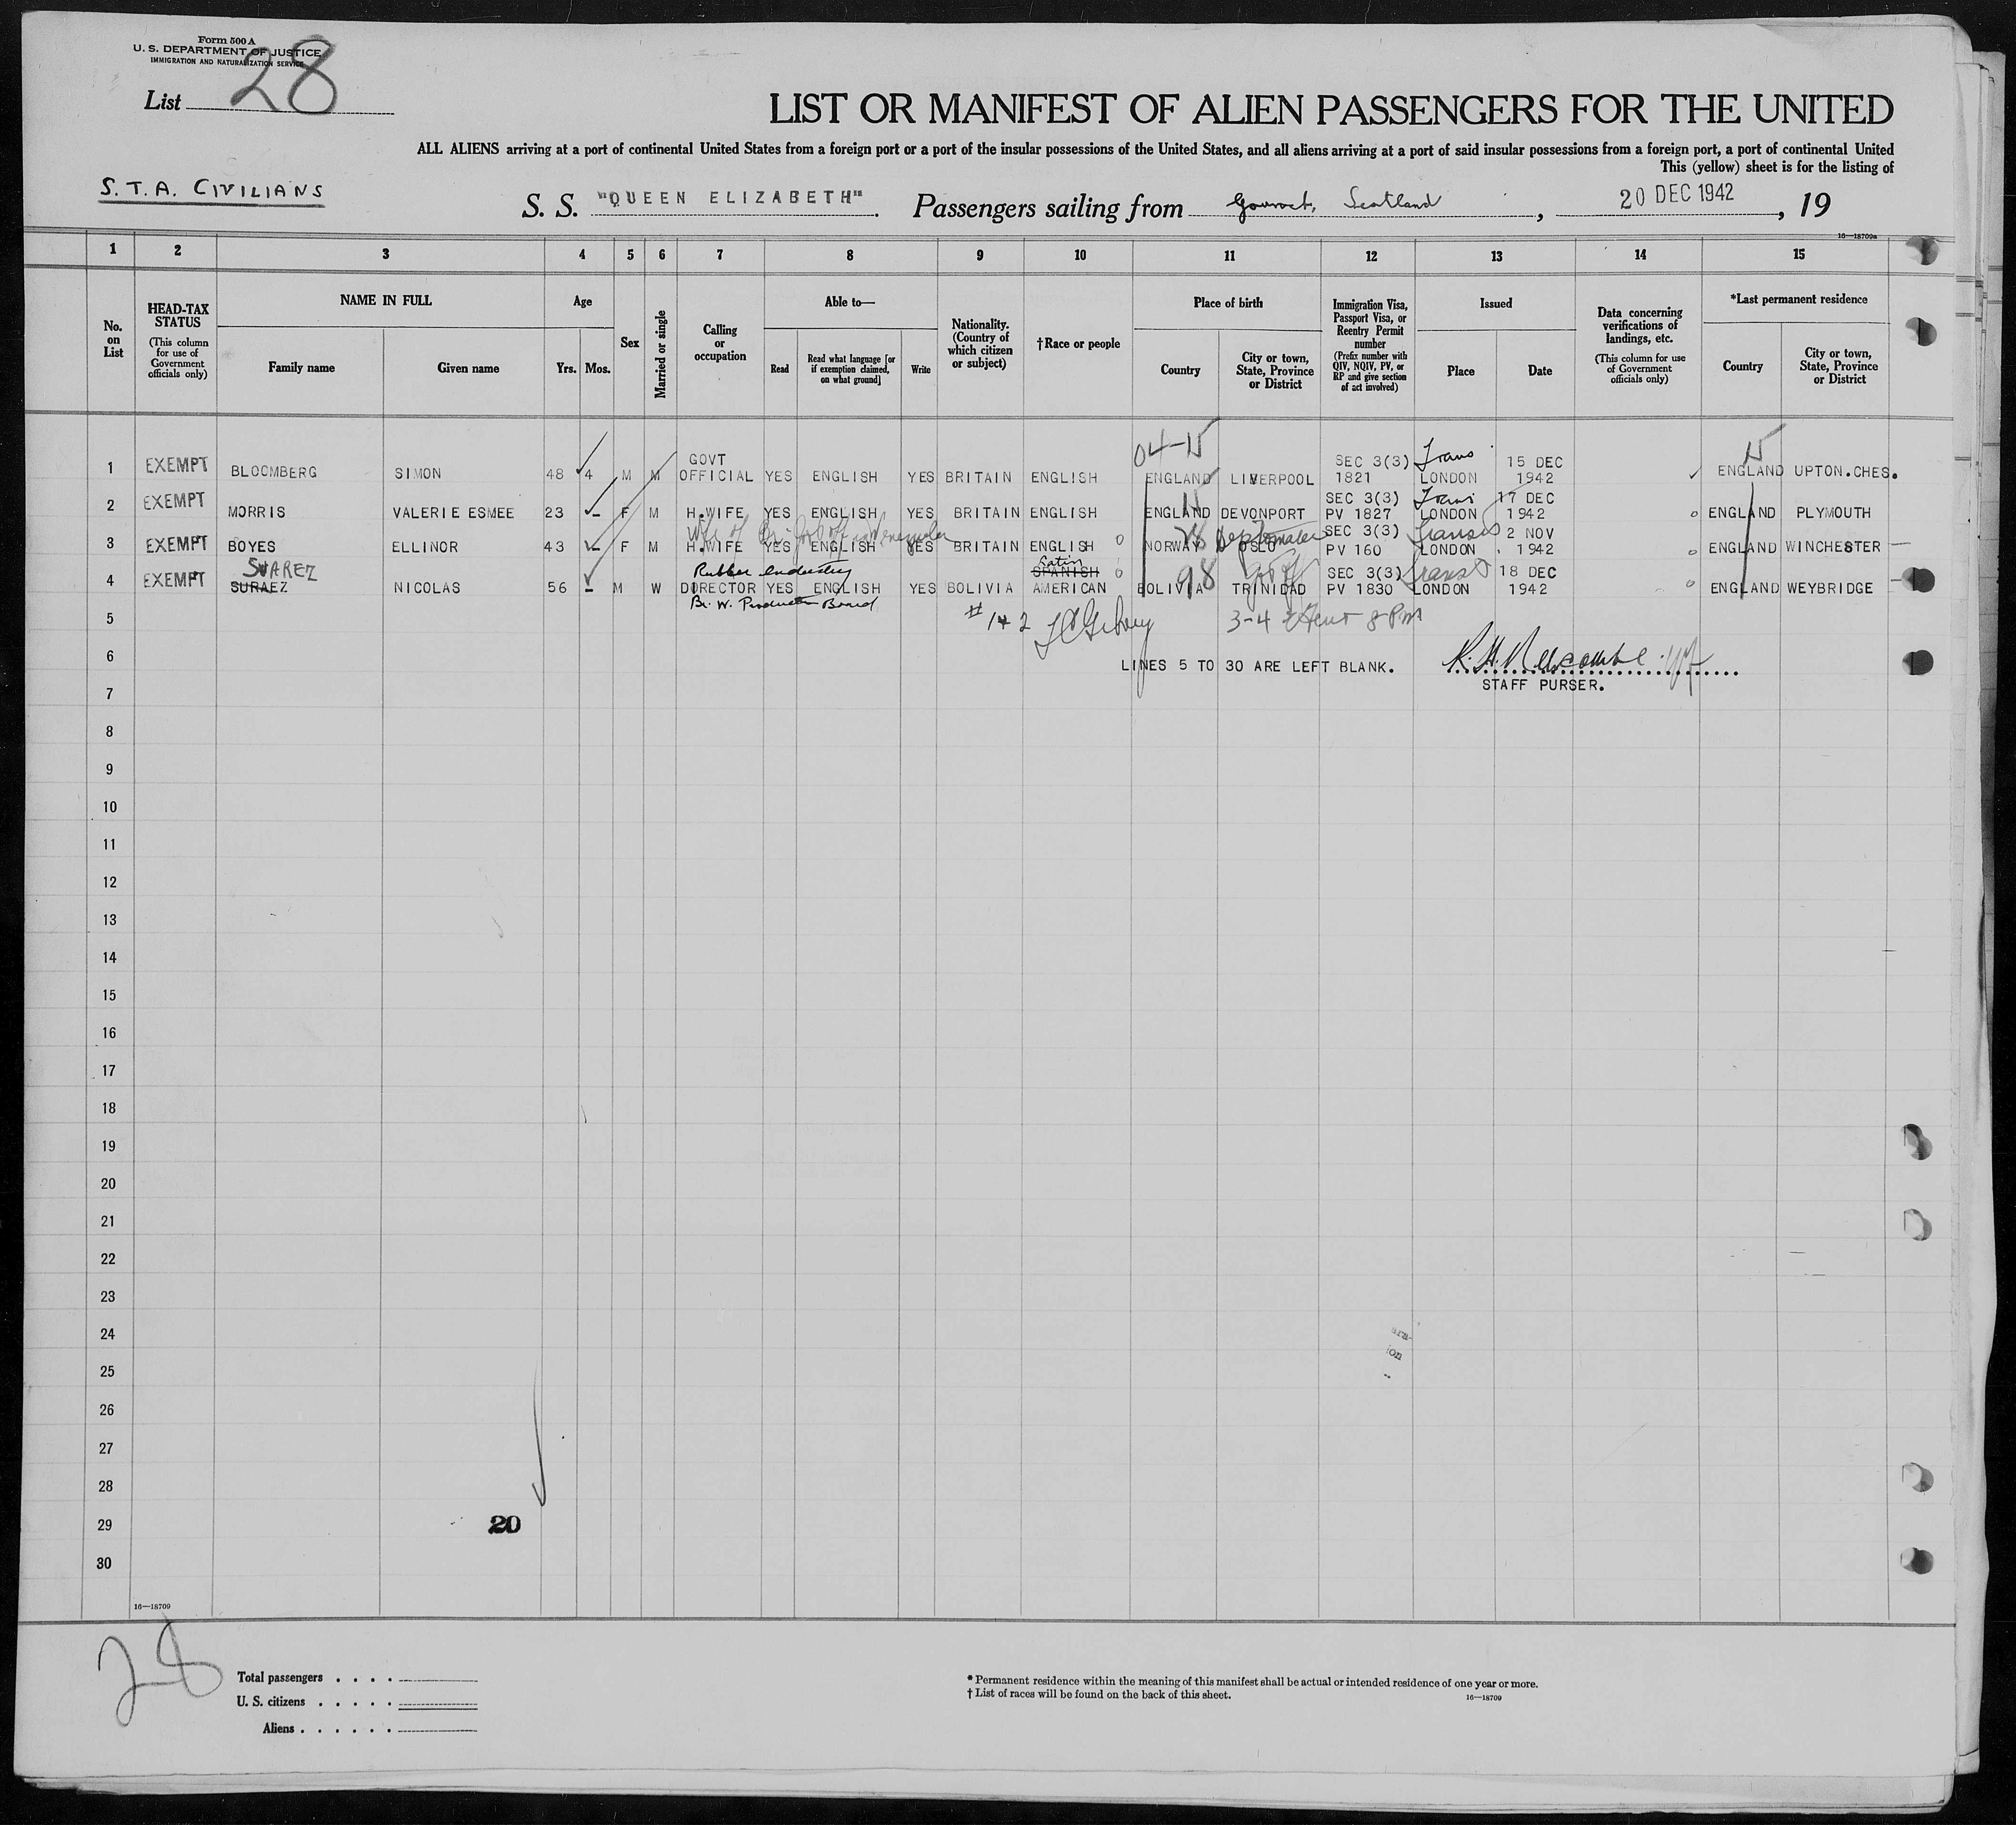 Form 500 A
U. S. DEPARTMENT OF JUSTICE
IMMIGRATION AND NATURALIZATION SERVICE
List 28
LIST OR MANIFEST OF ALIEN PASSENGERS FOR THE UNITED
ALL ALIENS arriving at a port of continental United States from a foreign port or a port of the insular possessions of the United States, and all aliens arriving at a port of said insular possessions from a foreign port, a port of continental United
This (yellow) sheet is for the listing of
S.T.A. CIVILIANS
S. S. "QUEEN ELIZABETH". Passengers sailing from Gourock, Scotland, 20 DEC 1942, 19
16—18709a
1 2 3 4 5 6 7 8 9 10 11 12 13 14 15
No. on List
HEAD-TAX STATUS
(This column for use of Government officials only)
NAME IN FULL
Family name
Given name
Age
Yrs. Mos.
Sex
Married or single
Calling or occupation
Able to—
Read
Read what language [or if exemption claimed, on what ground]
Write
Nationality. (Country of which citizen or subject)
†Race or people
Place of birth
Country
City or town, State, Province or District
Immigration Visa, Passport Visa, or Reentry Permit number
(Prefix number with QIV, NQIV, PV, or RP and give section of act involved)
Issued
Place
Date
Data concerning verifications of landings, etc.
(This column for use of Government officials only)
*Last permanent residence
Country
City or town, State, Province or District
04-15 15
GOVT SEC 3(3) Trans 15 DEC
1 EXEMPT BLOOMBERG SIMON 48 4 M M OFFICIAL YES ENGLISH YES BRITAIN ENGLISH ENGLAND LIVERPOOL 1821 LONDON 1942 ENGLAND UPTON.CHES.
SEC 3(3) Trans 17 DEC
2 EXEMPT MORRIS VALERIE ESMEE 23 – F M H.WIFE YES ENGLISH YES BRITAIN ENGLISH ENGLAND DEVONPORT PV 1827 LONDON 1942 ENGLAND PLYMOUTH
Wife of Br. SEC 3(3) Transit 2 NOV
3 EXEMPT BOYES ELLINOR 43 – F M H.WIFE YES ENGLISH YES BRITAIN ENGLISH NORWAY OSLO PV 160 LONDON 1942 ENGLAND WINCHESTER
SUAREZ Rubber Industry Latin SPANISH 98 SEC 3(3) Transit 18 DEC
4 EXEMPT SURAEZ NICOLAS 56 – M W DIRECTOR YES ENGLISH YES BOLIVIA AMERICAN BOLIVIA TRINIDAD PV 1830 LONDON 1942 ENGLAND WEYBRIDGE
Br. W. Production Board
5 # 1+2 3-4
6 LINES 5 TO 30 ARE LEFT BLANK.
STAFF PURSER.
7
8
9
10
11
12
13
14
15
16
17
18
19
20
21
22
23
24
25
26
27
28
29 20
30
16—18709
28
Total passengers
U. S. citizens
Aliens
* Permanent residence within the meaning of this manifest shall be actual or intended residence of one year or more.
† List of races will be found on the back of this sheet.
16—18709